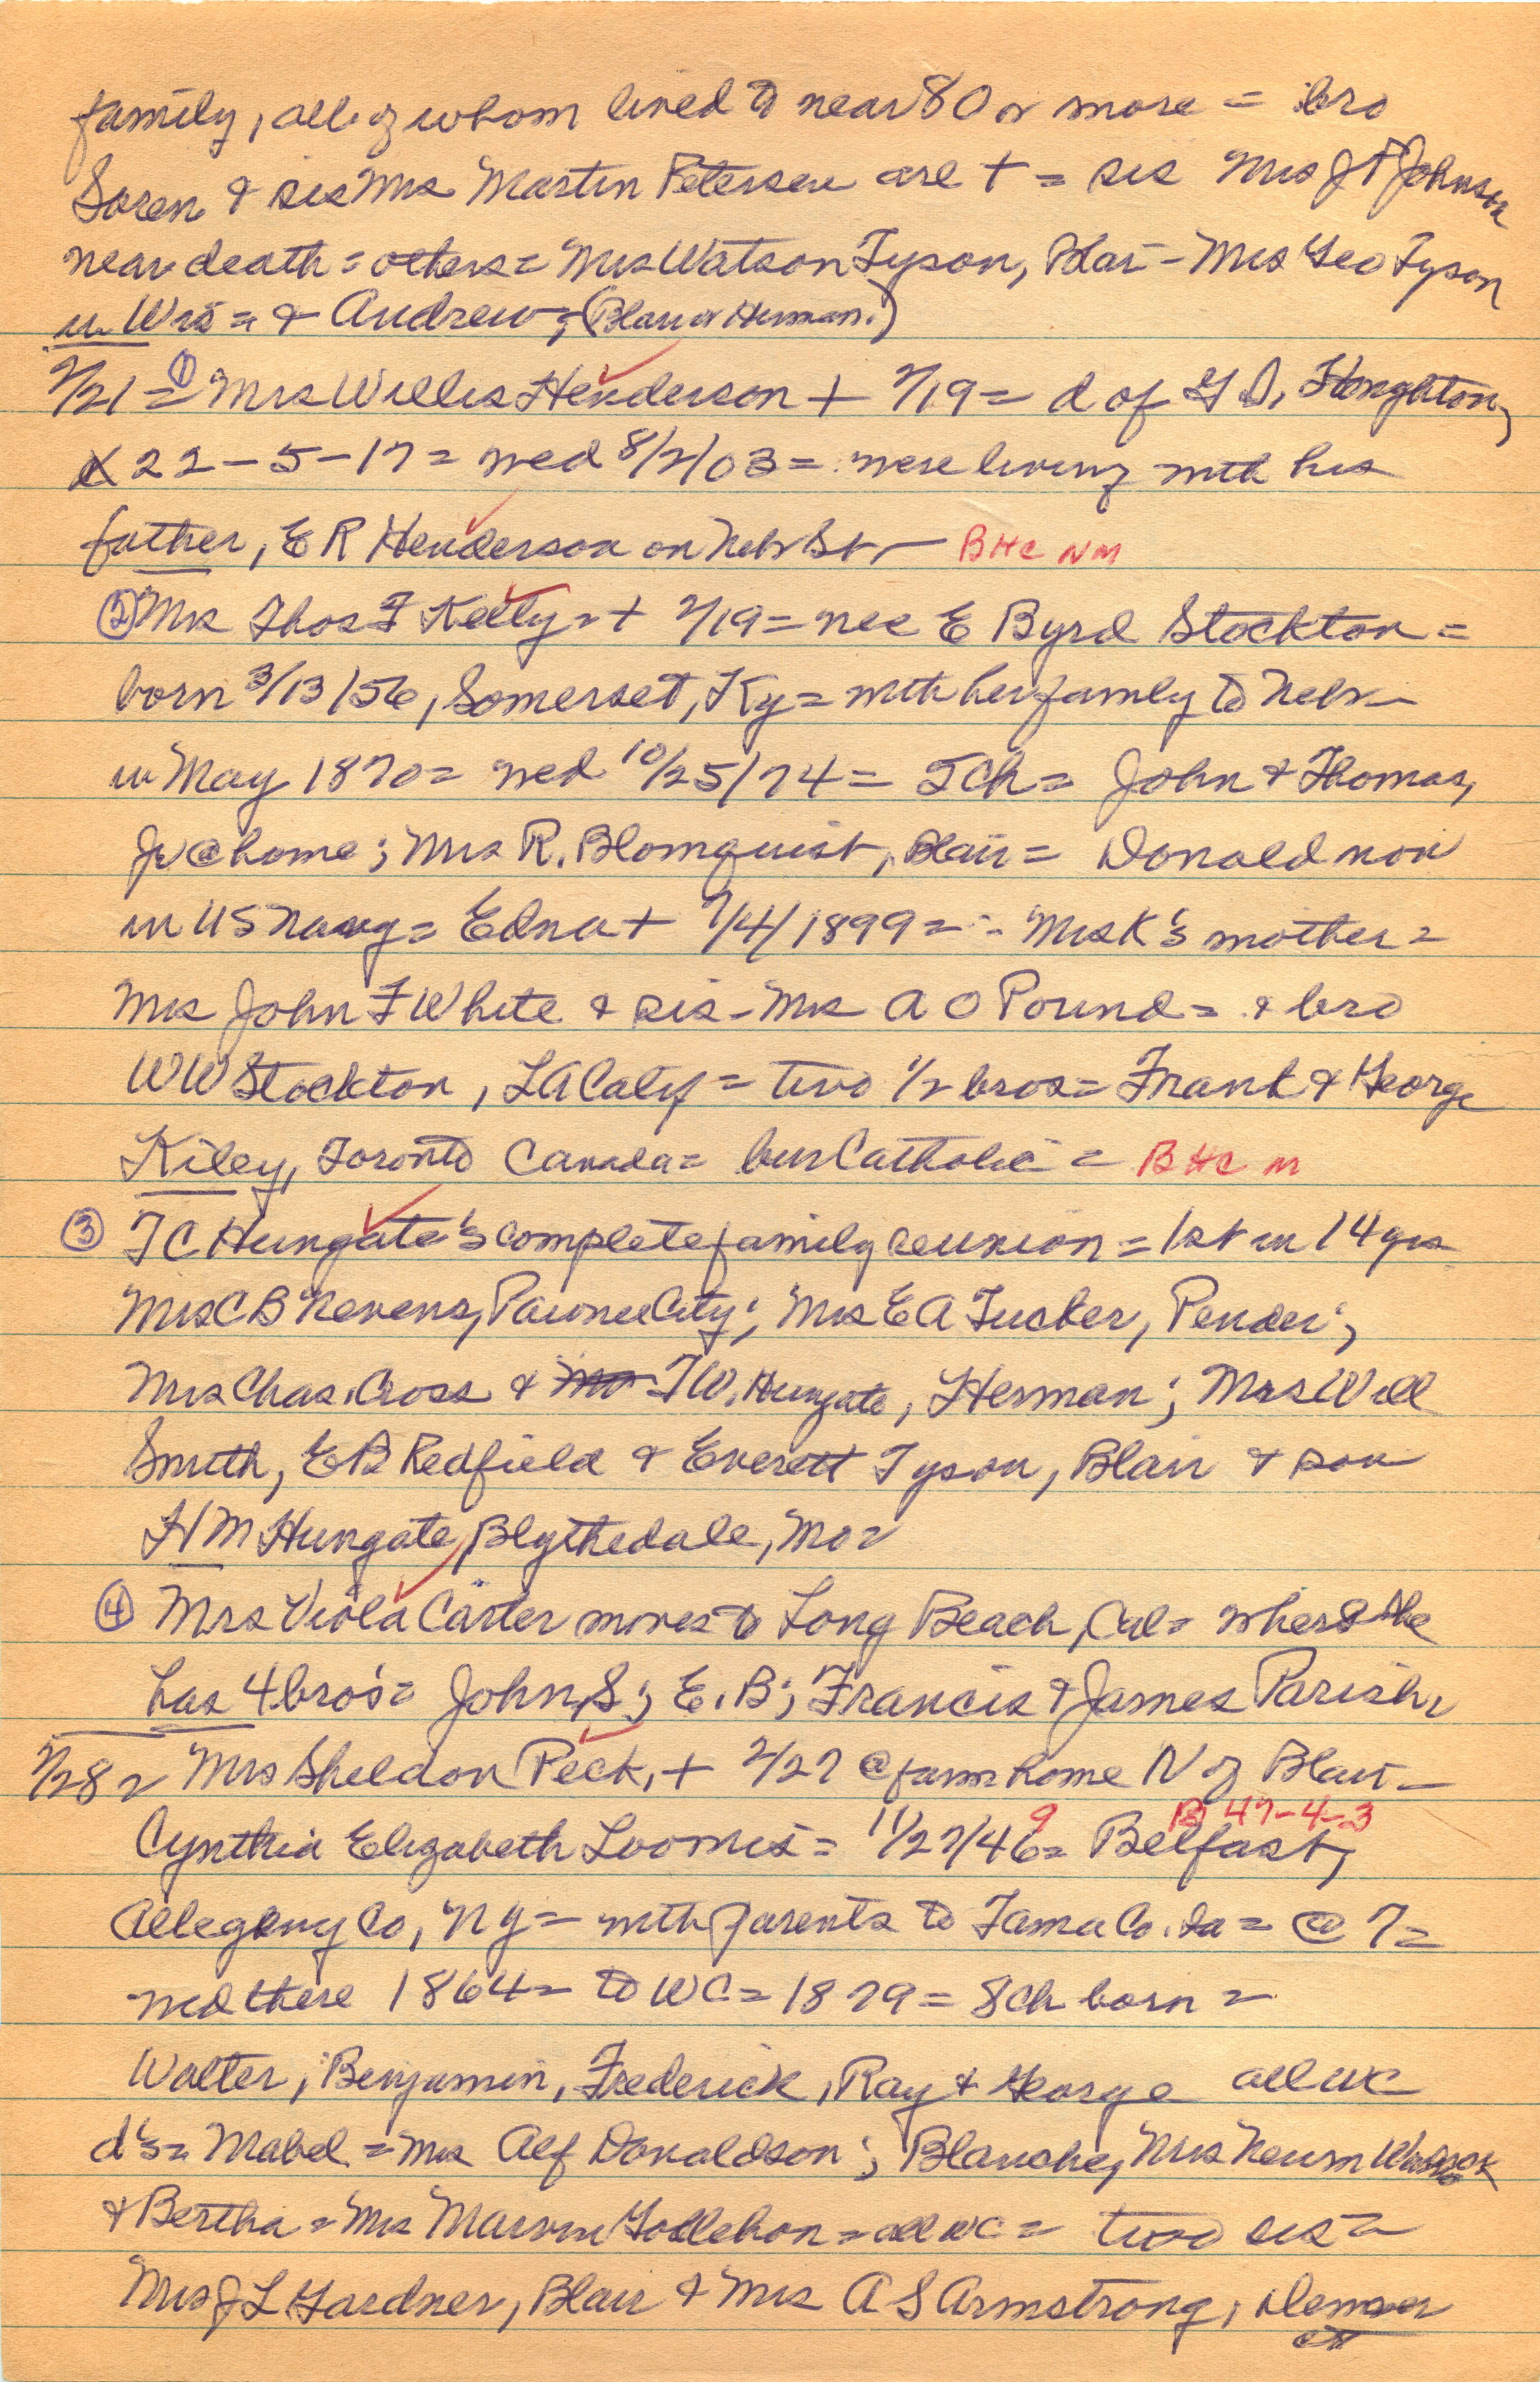 family, all of whom lived to near 80 or more = bro
Soren & sis Mrs Martin Petersen are + = sis Mrs J P Johnson
near death = others = Mrs Watson Tyson, Blair - Mrs Geo Tyson
in Wis = & Andrew = (Blair or Herman.)
2/21 = ① Mrs Willis Henderson + 2/19 = d of G D, Houghton,
22-5-17 = wed 8/2/03 = were living with his
father, E R Henderson on Nebr St - BHC NM
② Mrs Thos F Kelly = + 2/19 = nee E Byrd Stockton =
born 3/13/56, Somerset, Ky = with her family to Nebr -
in May 1870 = wed 10/25/74 = 5Ch = John & Thomas,
Jr @ home; Mrs R. Blomquist, Blair = Donald now
in US Navy = Edna + 7/4/1899 = - Mrs K's mother =
Mrs John F White & sis - Mrs A O Pound = & bro
WW Stockton, LA Calif = two 1/2 bros = Frank & George
Kiley, Toronto Canada = bur Catholic = BHC M
③ T C Hungate's complete family reunion = 1st in 14 yrs
Mrs C B Nevens, Pawnee City; Mrs E A Tucker, Pender;
Mrs Chas. Cross & T W. Hungate, Herman; Mrs Will
Smith, E B Redfield & Everett Tyson, Blair & son
H M Hungate, Blythedale, Mo =
④ Mrs Viola Carter moves to Long Beach, Cal = where she
has 4 bro's = John S; E. B; Francis & James Parish =
2/28 = Mrs Sheldon Peck, + 2/27 @ farm home N of Blair -
B 47-4-3
Cynthia Elizabeth Loomis = 11/27/46 9 = Belfast,
Allegany Co, NY = with parents to Tama Co. Ia = @ 7 =
wed there 1864 = to WC = 1879 = 8 Ch born =
Walter, Benjamin, Frederick, Ray & George all WC
d's = Mabel = Mrs Alf Donaldson; Blanche, Mrs Newm
& Bertha = Mrs Marvin Gollehon = all WC = two sis =
Mrs J L Gardner, Blair & Mrs A S Armstrong, Denver